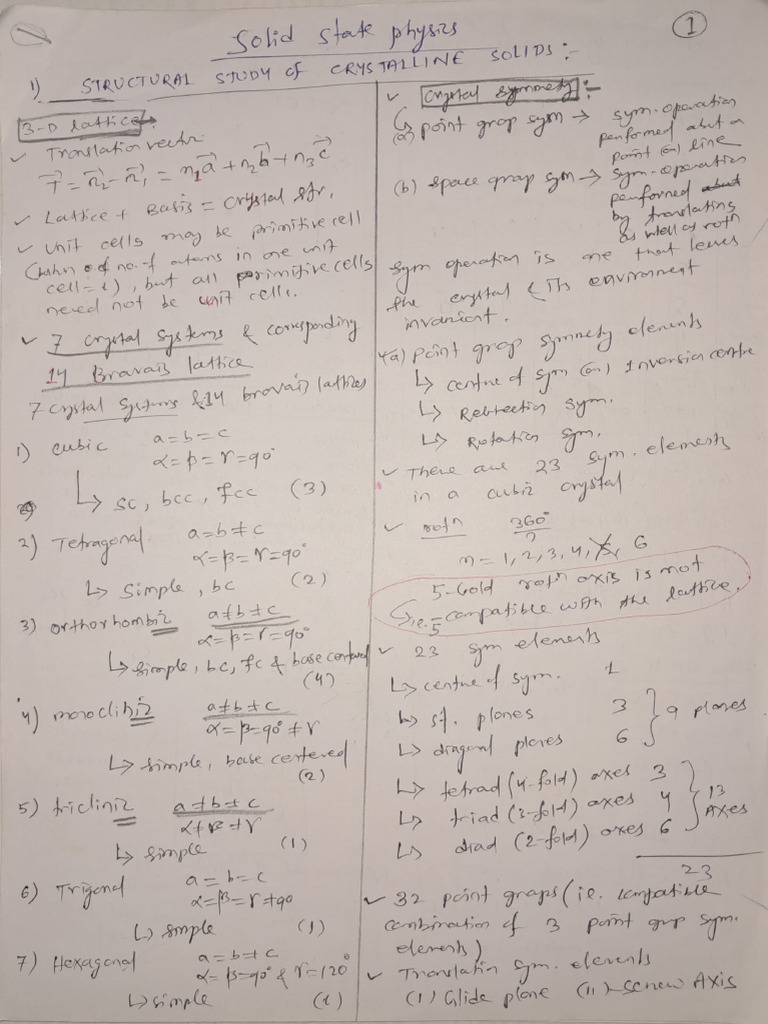 1
Solid state physics
1) STRUCTURAL STUDY of CRYSTALLINE SOLIDS :-
3-D lattice
✓ Translation vector:
T = n₂ - n₁ = n₁a + n₂b + n₃c
✓ Lattice + Basis = Crystal str.
✓ Unit cells may be primitive cell
no. of atoms in one unit
cell = 1), but all primitive cells
need not be unit cells.
✓ 7 crystal systems & corresponding
14 Bravais lattice
7 crystal systems & 14 bravais lattices
1) cubic a = b = c
α = β = γ = 90°
↳ sc, bcc, fcc (3)
2) Tetragonal a = b ≠ c
α = β = γ = 90°
↳ simple, bc (2)
3) orthorhombic a ≠ b ≠ c
α = β = γ = 90°
↳ simple, bc, fc & base centered
(4)
4) monoclinic a ≠ b ≠ c
α = β = 90° ≠ γ
↳ simple, base centered
(2)
5) triclinic a ≠ b ≠ c
α ≠ β ≠ γ
↳ simple (1)
6) Trigonal a = b = c
α = β = γ ≠ 90
↳ smple (1)
7) Hexagonal a = b ≠ c
α = β = 90° & γ = 120°
↳ simple (1)
✓ Crystal symmetry :-
↳ (a) point grop sym → sym. operation
performed abut a
point (or) line
(b) space grop sym → sym. operation
performed
by translating
as well as rotn
sym operation is one that leves
the crystal & its environment
invarient.
4a) point grop symmety elements
↳ centre of sym (or) Inversion centre
↳ Reblection sym.
↳ Rotation sym.
✓ There are 23 sym. elements
in a cubic crystal
✓ rotn 360°/n
n = 1, 2, 3, 4, 5, 6
5-fold rotn axis is not
↳ i.e. 5 compatible with the lattice.
✓ 23 sym elements
↳ centre of sym. 1
↳ st. planes 3
9 planes
↳ diagonal planes 6
↳ tetrad (4-fold) axes 3
↳ triad (3-fold) axes 4
13 Axes
↳ diad (2-fold) axes 6
23
✓ 32 point grops (i.e. compatible
combination of 3 point grop sym.
elements)
✓ Translatin sym. elements
(i) Glide plane (ii) screw Axis